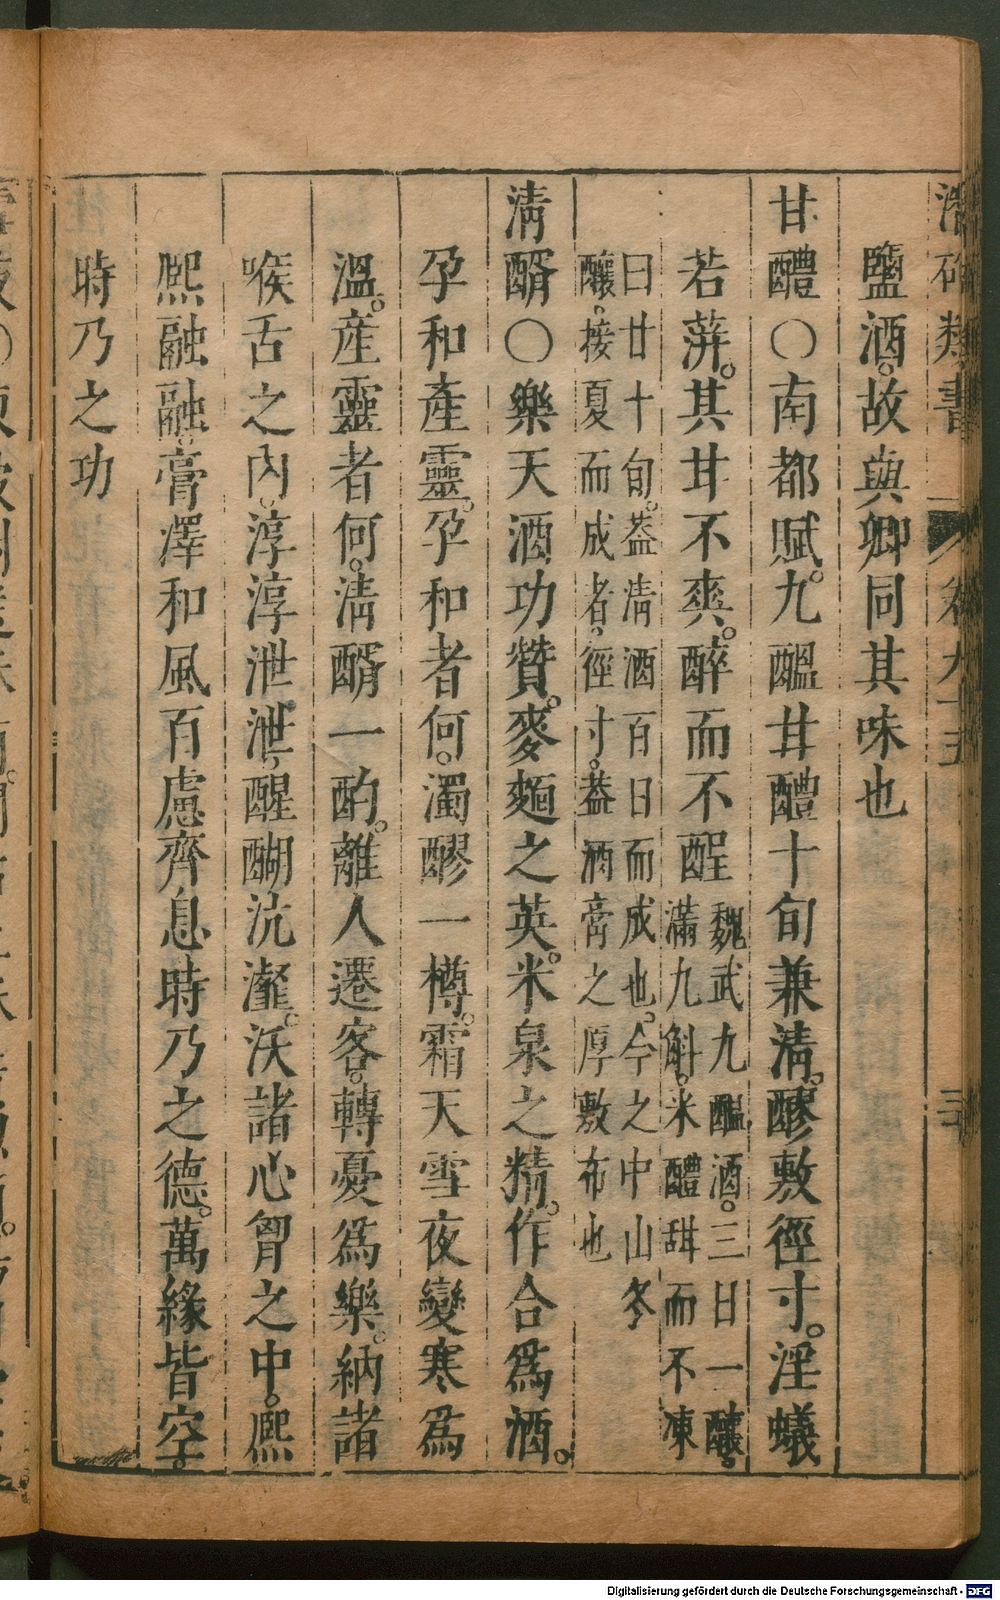 鹽酒。故與卿同其味也
甘醴〇南都賦。九醞甘醴十旬兼清。醪敷徑寸。淫蟻
若蓱。其甘不爽。醉而不酲
魏武九醞酒。三日一釀。
滿九斛。米醴甜而不凍
曰廿十旬。葢清酒百日而成也。今之中山冬
釀。接夏而成者。徑寸。葢酒膏之厚敷布也
清醑〇樂天酒功贊。麥麯之英。米泉之精。作合爲酒。
孕和產靈。孕和者何。濁醪一樽。霜天雪夜變寒爲
溫。產靈者何。清醑一酌。離人遷客。轉憂爲樂。納諸
喉舌之內。淳淳泄泄。醒醐沆瀣。沃諸心胷之中。熈
熈融融。膏澤和風百慮齊息時乃之德。萬緣皆空。
時乃之功
類書
卷九十五
Digitalisierung gefördert durch die Deutsche Forschungsgemeinschaft - DFG